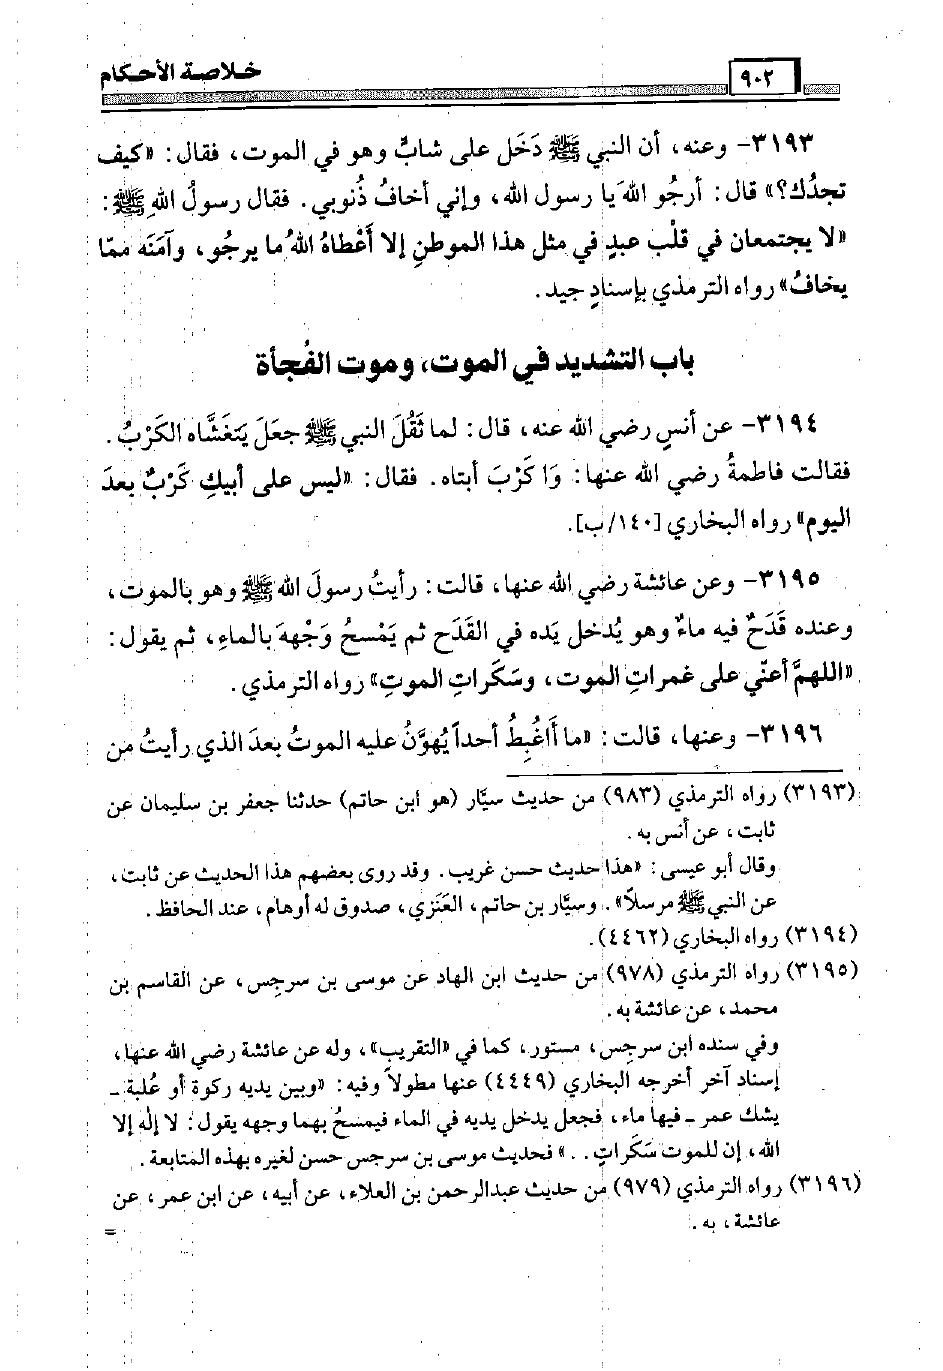 ٩٠٢
خلاصة الأحكام
٣١٩٣- وعنه، أن النبي ﷺ دَخَل على شابٍّ وهو في الموت، فقال: «كيف
تجدُك؟» قال: أرجُو اللهَ يا رسول الله، وإني أخافُ ذُنوبي. فقال رسولُ اللهِ ﷺ:
«لا يجتمعان في قلْب عبدٍ في مثل هذا الموطنِ إلا أَعْطاهُ اللهُ ما يرجُو، وآمَنَه ممّا
يخافُ» رواه الترمذي بإسنادٍ جيد.
باب التشديد في الموت، وموت الفُجأة
٣١٩٤- عن أنسٍ رضي الله عنه، قال: لما ثَقُلَ النبي ﷺ جعَلَ يَتَغَشَّاه الكَرْبُ.
فقالت فاطمةُ رضي الله عنها: وَا كَرْبَ أبتاه. فقال: «ليس على أبيكِ كَرْبٌ بعدَ
اليوم» رواه البخاري [١٤٠/ب].
٣١٩٥- وعن عائشة رضي الله عنها، قالت: رأيتُ رسولَ الله ﷺ وهو بالموت،
وعنده قَدَحٌ فيه ماءٌ وهو يُدخل يَده في القَدَح ثم يَمْسحُ وَجْههَ بالماءِ، ثم يقول:
«اللهمَّ أعنّي على غمراتِ الموت، وسَكَراتِ الموتِ» رواه الترمذي.
٣١٩٦- وعنها، قالت: «ما أَاغْبِطُ أحداً يُهوَّنُ عليه الموتُ بعدَ الذي رأيتُ من
(٣١٩٣) رواه الترمذي (٩٨٣) من حديث سيَّار (هو ابن حاتم) حدثنا جعفر بن سليمان عن
ثابت، عن أنس به.
وقال أبو عيسى: «هذا حديث حسن غريب. وقد روى بعضهم هذا الحديث عن ثابت،
عن النبي ﷺ مرسلاً». وسيَّار بن حاتم، العَنَزي، صدوق له أوهام، عند الحافظ.
(٣١٩٤) رواه البخاري (٤٤٦٢).
(٣١٩٥) رواه الترمذي (٩٧٨) من حديث ابن الهاد عن موسى بن سرجِس، عن القاسم بن
محمد، عن عائشة به.
وفي سنده ابن سرجس، مستور، كما في «التقريب»، وله عن عائشة رضي الله عنها،
إسناد آخر أخرجه البخاري (٤٤٤٩) عنها مطولاً وفيه: «وبين يديه ركوة أو عُلبة ـ
يشك عمر ـ فيها ماء، فجعل يدخل يديه في الماء فيمسحُ بهما وجهه يقول: لا إله إلا
الله، إن للموت سَكَراتٍ. .» فحديث موسى بن سرجس حسن لغيره بهذه المتابعة.
(٣١٩٦) رواه الترمذي (٩٧٩) من حديث عبدالرحمن بن العلاء، عن أبيه، عن ابن عمر، عن
عائشة، به.
=